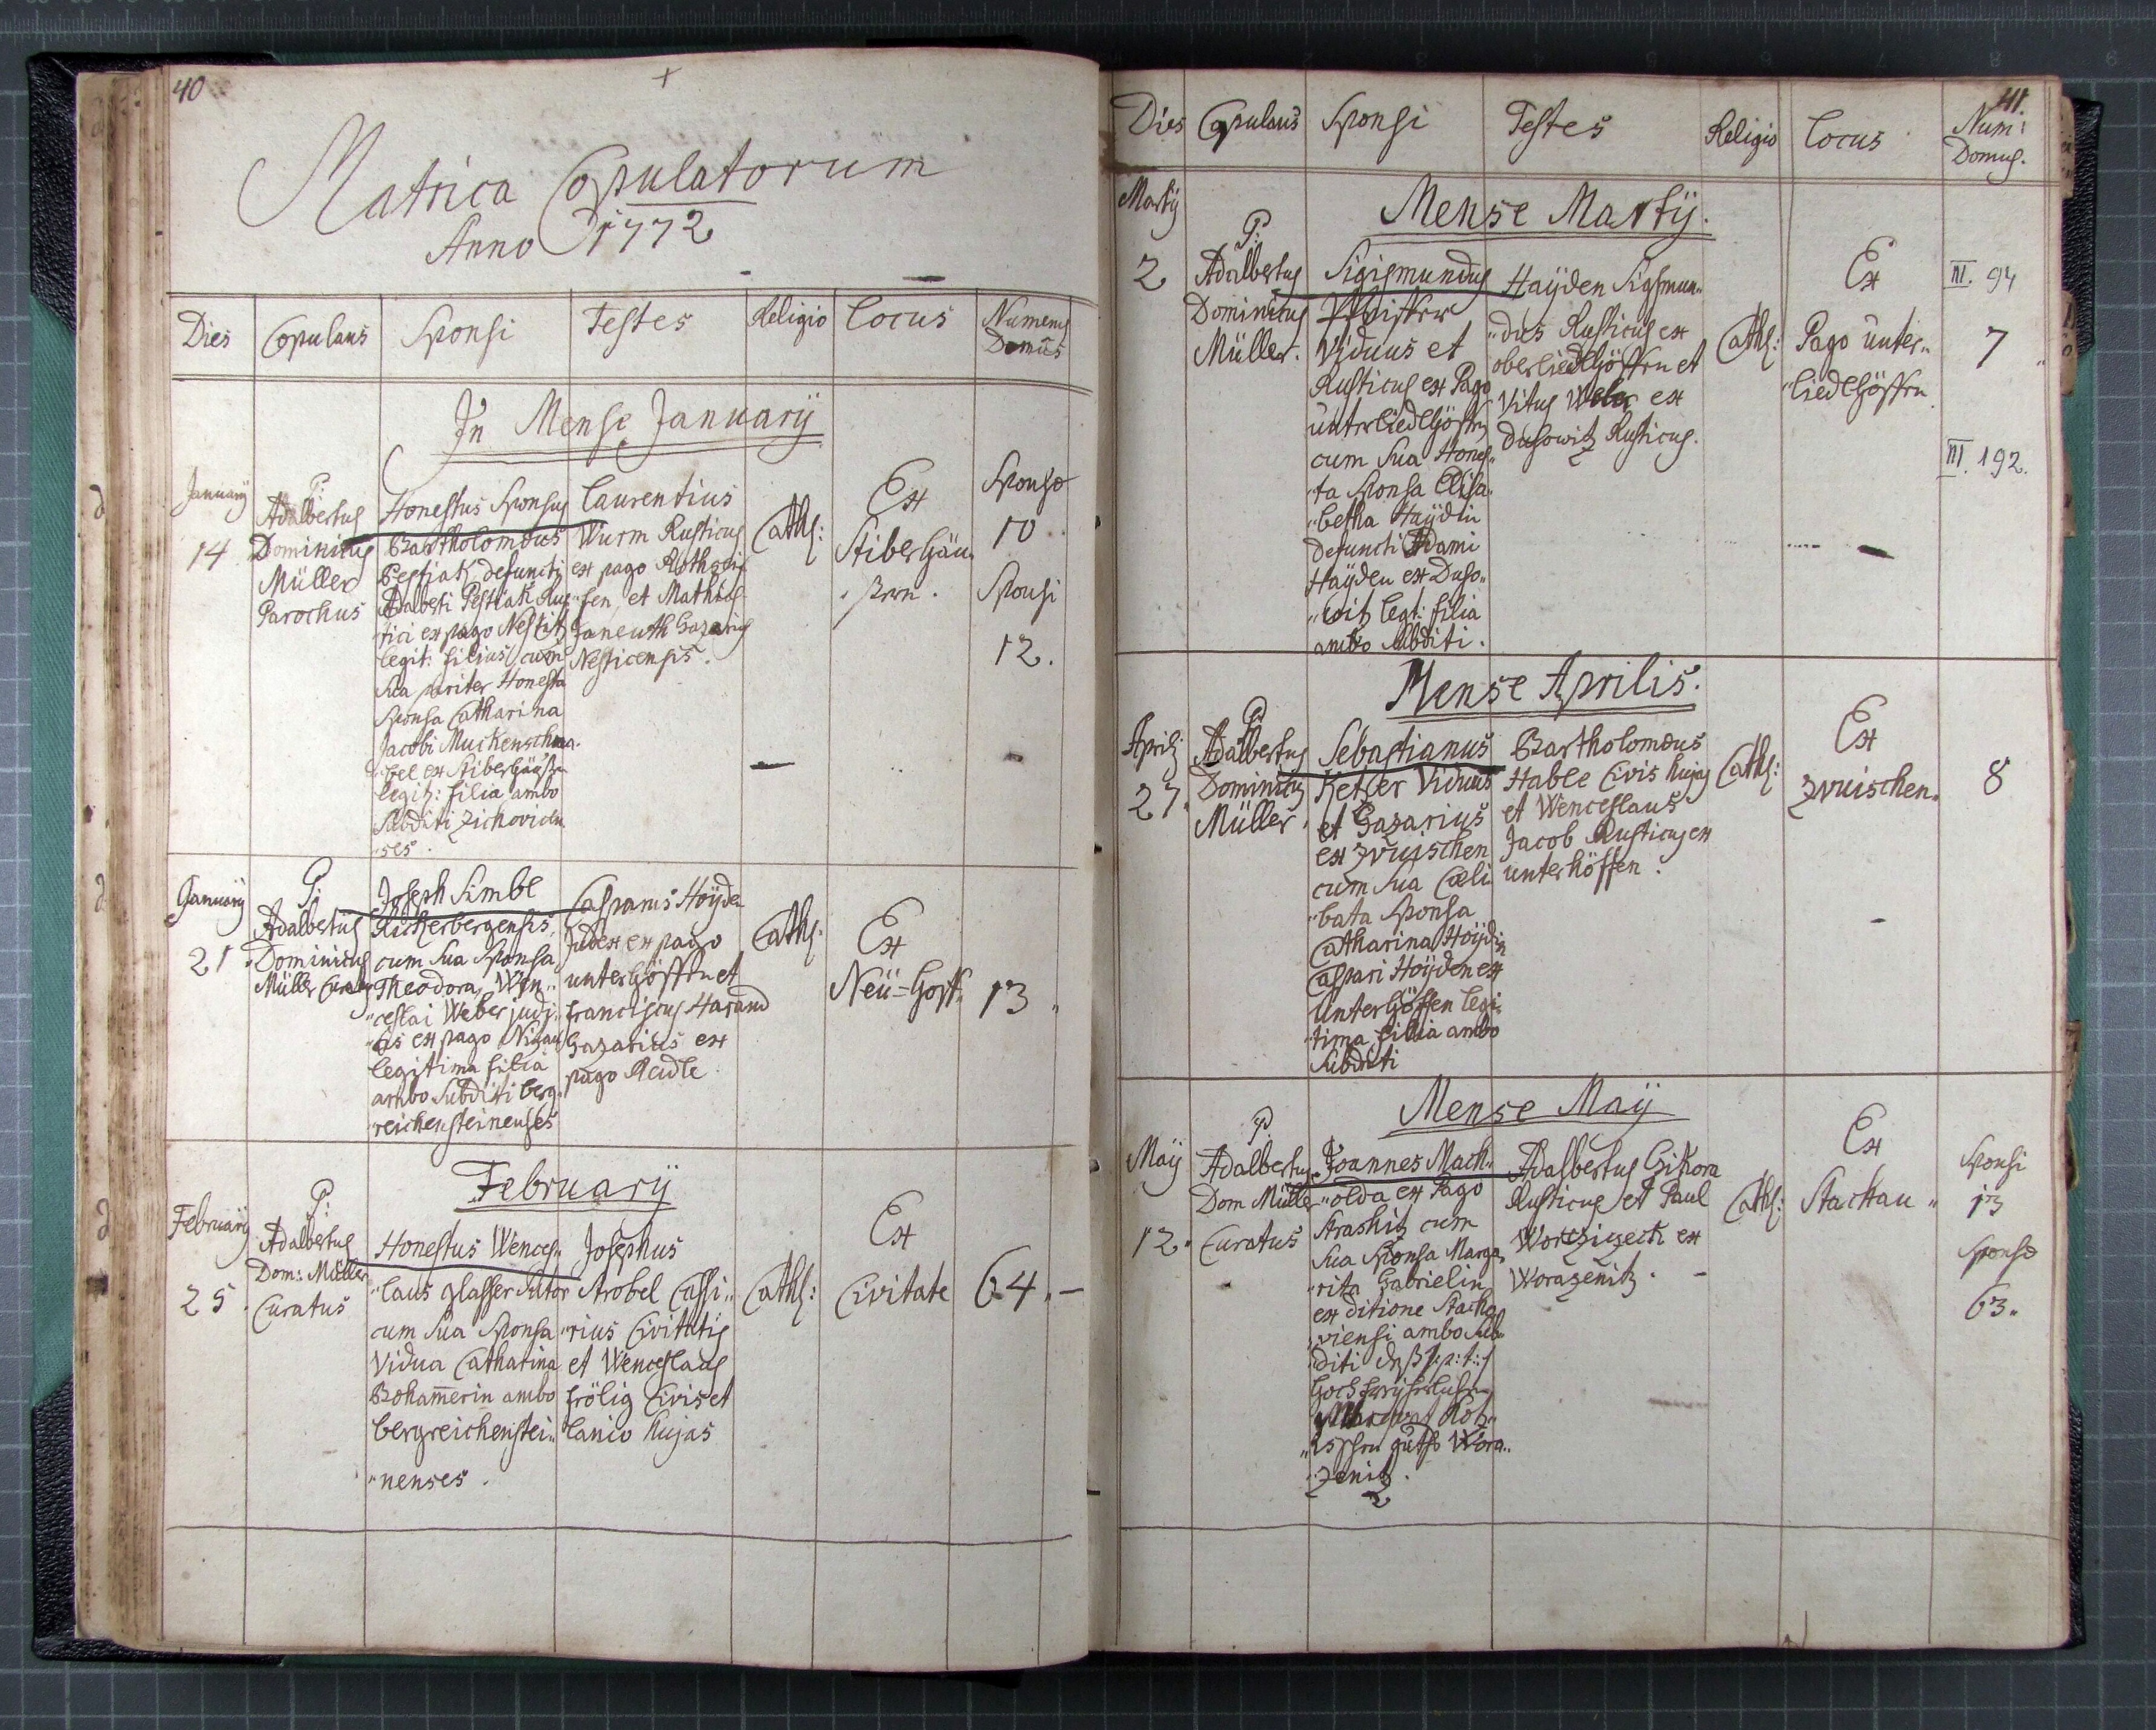 40
Matrica Copulatorum
Anno 1772
Dies Copulans Sponsi Testes Religio Locus Numerus Domus
In Mense Januarÿ
Januarÿ
14
P:
Adalbertus
Dominicus
Müller
Parochus
Honestus Sponsus
Bartholomæus
Pestiak defuncti
Adalberti Pestiak Rus
tici ex pago Nestitz
legit: filius cum
sua pariter Honesta
Sponsa Catharina
Jacobi Muckenschna
legit: filia ambo
Subditi Zichovien
ses.
Laurentius
Wurm Rusticus
ex pago
sen et Mathias
Janeuth Gazarius
Nesticensis.
Cath:
Ex
Sponsæ
10
Sponsi
12.
Januarÿ
21
P:
Adalbertus
Dominicus
Müller
Joseph Simbl
cum sua Sponsa
Theodora Wen„
„ceslai Weber judi
cis ex pago
legitima filia
ambo Subditi berg„
reichensteinenses
Casparus Hoÿden
Judex ex pago
franciscus Harand
Gazarius ex
pago
Cath:
Ex
13„
Februarÿ
Februarÿ
25.
P:
Adalbertus
Dom: Müller
Curatus
Honestus Wences„
„laus glasser Sutor
cum sua Sponsa
Vidua Catharina
ambo
bergreichenstei„
„nenses.
Josephus
Strobel Cassi„
„rius Civitatis
et Wenceslaus
frölig Civis et
lanio hujas
Cath:
Ex
Civitate
64.
41.
Dies Copulans Sponsi Testes Religio Locus Num: Domus.
Mense Martÿ.
Martÿ
2
P:
Adalbertus
Dominicus
Müller.
Sigismundus
Viduus et
Rusticus ex Pago
cum sua Hones„
„ta Sponsa Elisa„
„betha Haÿdin
defuncti Adami
Haÿden ex Duso„
„witz legt: filia
ambo Subditi.
Haÿden Sigismun„
„dus Rusticus ex
et
Vitus Weber ex
Dusowitz Rusticus.
Cath:
Ex
Pago unter„
III. 94
7
III. 192.
Mense Aprilis.
Aprilis
27.
P
Adalbertus
Dominicus
Müller.
Sebastianus
Viduus
et Gazarius
ex Zwuischen
cum sua Cæli„
„bata Sponsa
Catharina Hoÿdin
Caspari Hoÿden ex
Unterhöffen legi„
„tima filia ambo
Subditi
Bartholomæus
Hable Civis hujas
et Wenceslaus
Jacob Rusticus ex
unterhöffen.
Cath:
Ex
Zwuischen.
8
Mense Maÿ
Maÿ
12.
P
Adalbertus
Dom Müller
Curatus
Joannes Mach„
„olda ex Pago
Strashitz cum
sua Sponsa Marga„
„rita Gabrielin
ex ditione Stacha„
„viensi ambo Sub„
„diti
Wora„
„zenitz.
Adalbertus
Rusticus et Paul
ex
Worazenitz.
Cath:
Ex
Stachau„
Sponsi
13
Sponsæ
63„